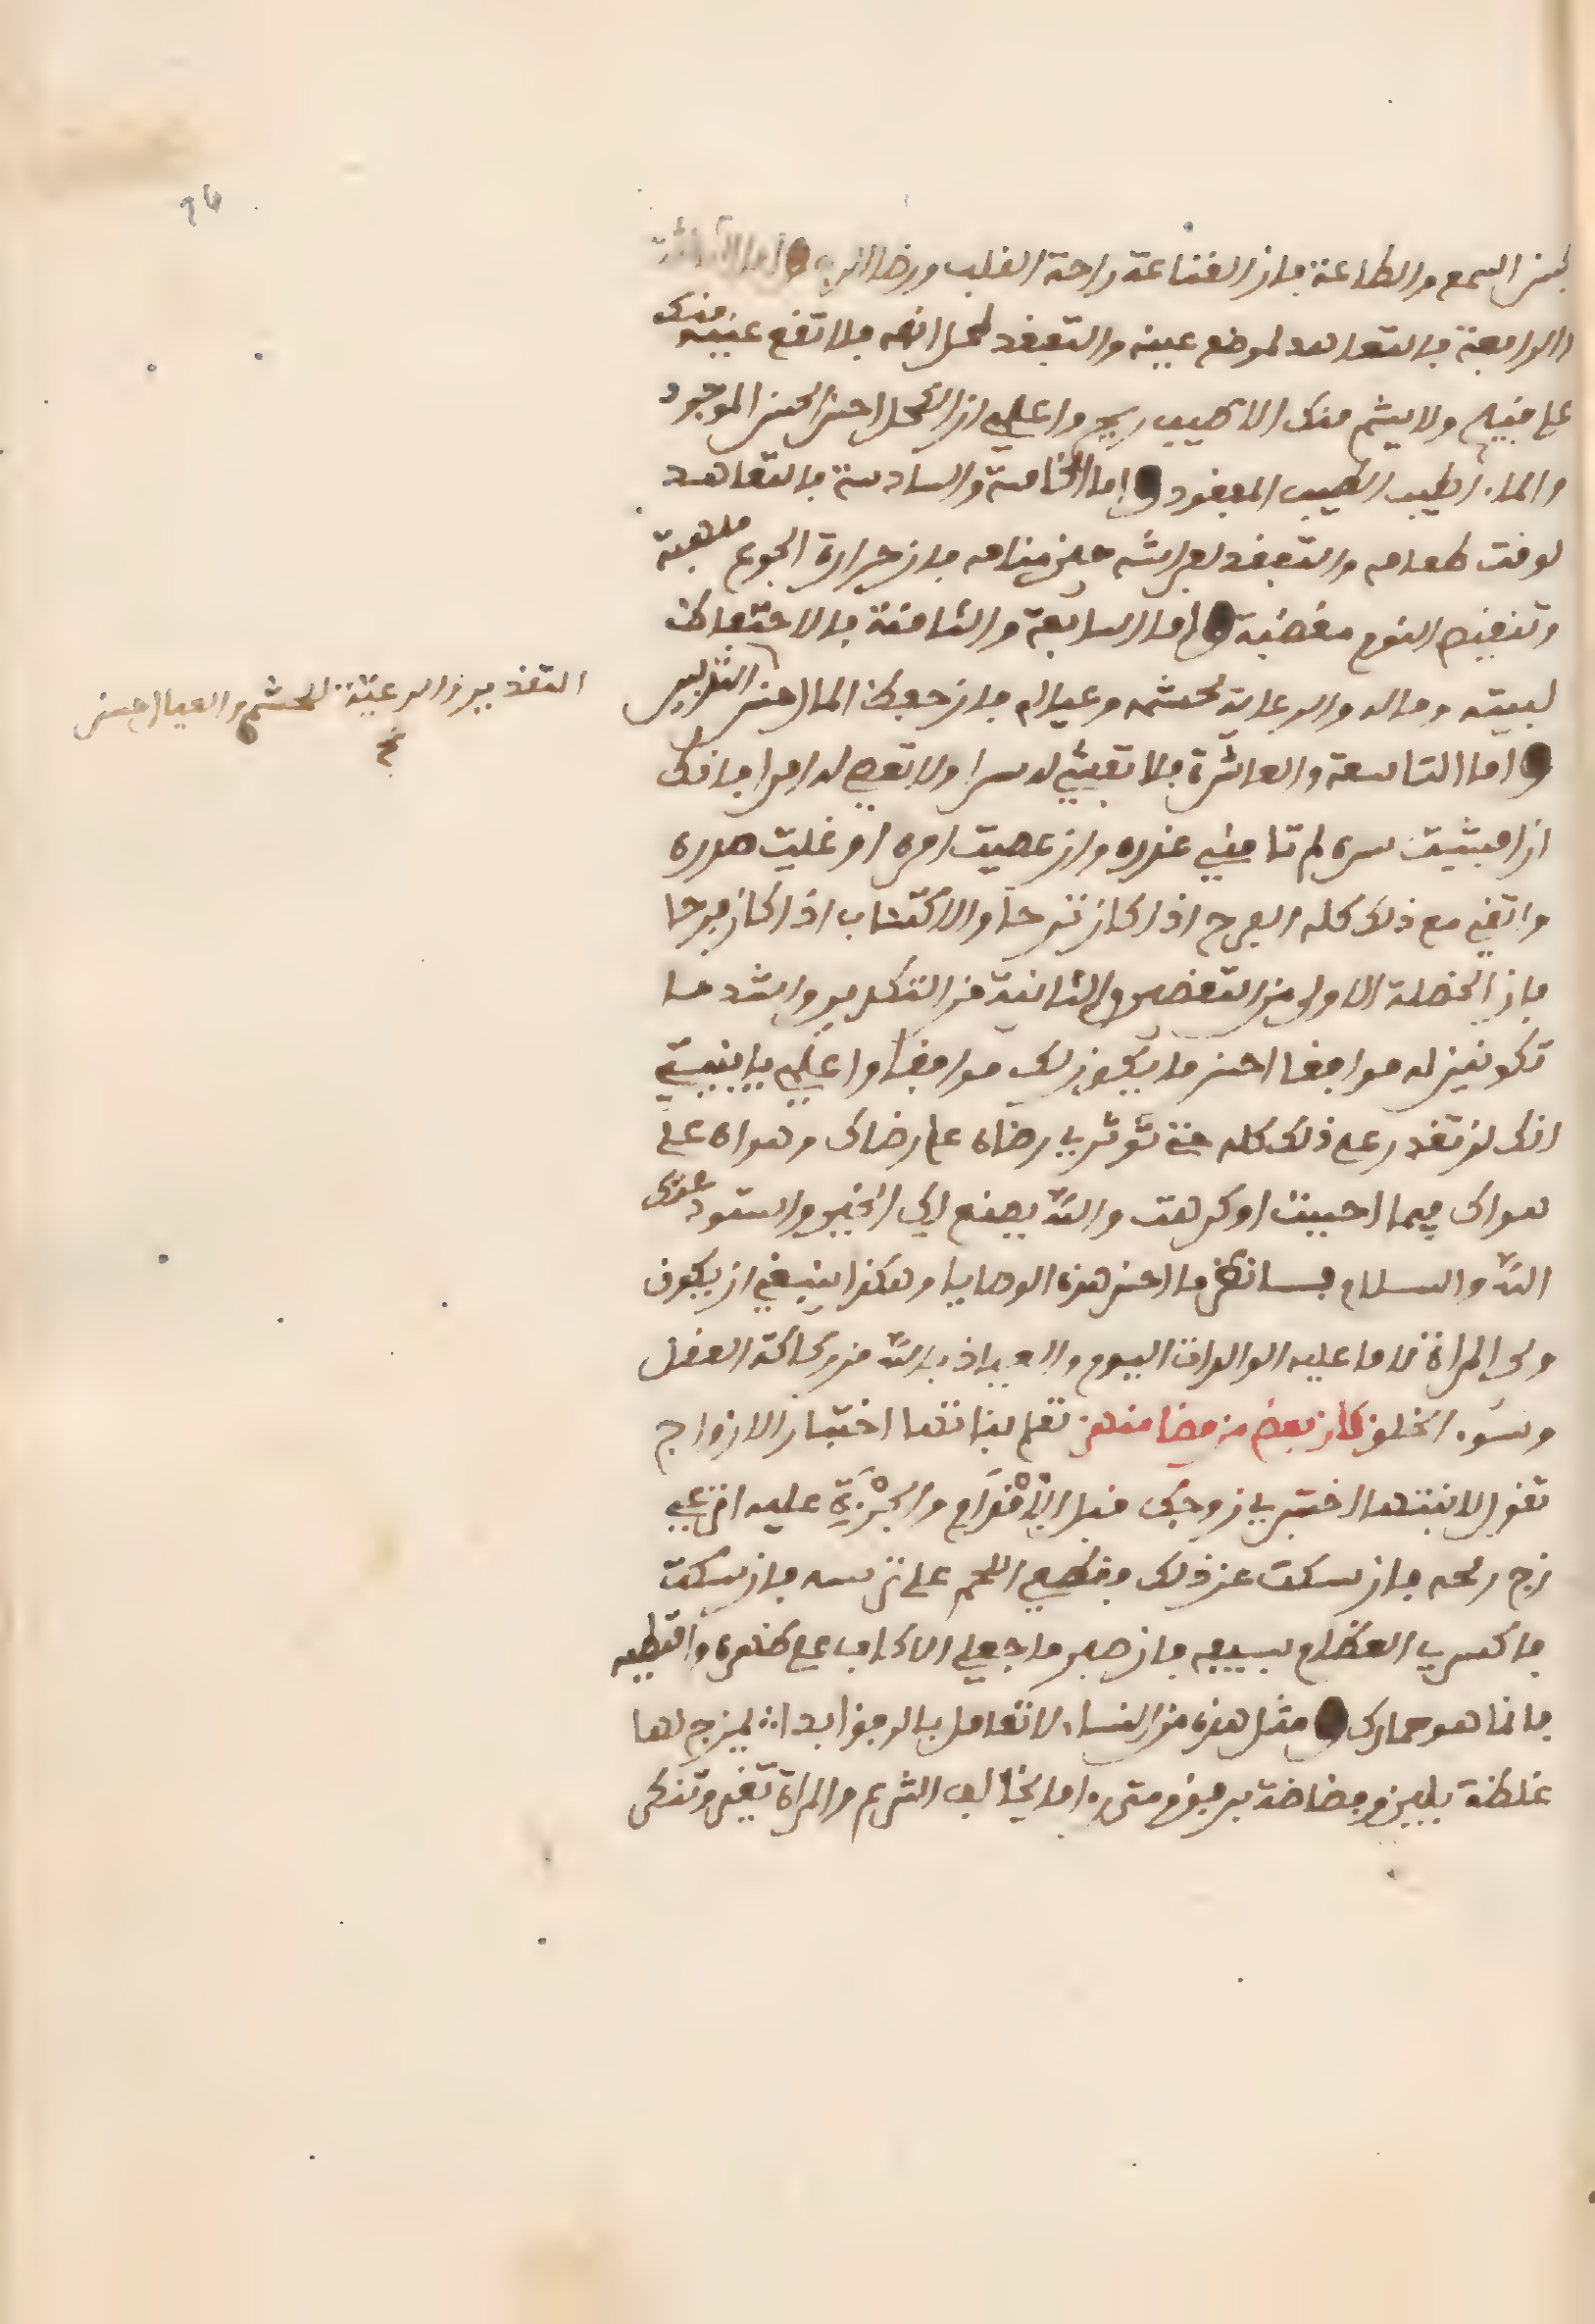 بحسن السمع والطاعة فإن القناعة راحة القلب ورضا الرب وأما الثالثة
والرابعة فالتعاهد لموضع عينه والتفقد لمحل انفه فلا تقع عينه منك
على قبيح ولا يشم منك الا طيب ريح واعلمي ان الكحل احسن الحسن الموجود
والماء اطيب الطيب المفقود واما الخامسة والسادسة فالتعاهد
لوقت طعامه والتفقد لفراشه حين منامه فان حرارة الجوع ملهبة
وتنغيص النوم مغضبة واما السابعة والثامنة فالاحتفاظ
لبيته وماله والرعاية لحشمه وعياله فان حفظ المال حسن التدبير
التقدير والرعية للحشم والعيال حسن
صح
واما التاسعة والعاشرة فلا تفشي له سرا ولا تعصي له امرا فانك
ان افشيت سره لم تامني غدره وان عصيت امره اوغليت صدره
واتقي مع ذلك كله الفرح اذا كان ترحا والاكتئاب اذا كان فرحا
فان الخصلة الاولى من التقصير والثانية من التكدير واشد ما
تكونين له موافقا احسن ما يكون لك موافقا واعلمي يا بنيتي
انك لن تقدر على ذلك كله حتى تؤثري رضاه على رضاك وهواه على
هواك فيما احببت او كرهت والله يصنع لك الخير واستودعتك
الله والسلام فانظر ما احسن هذه الوصايا وهكذا ينبغي ان يكون
ولي المراة لا ما عليه الوالدات اليوم والعياذ بالله من ركاكة العقل
وسوء الخلق كان بعض من مضا منهن تعلم بناتها اختبار الازواج
تقول لابنتها اختبري زوجك قبل الاقدام والجرية عليه انزعي
زج رمحه فان سكت عن ذلك فقطعي اللحم على ترسه فان سكت
فاكسري العظام بسيفه فان صبر فاجعلي الاكاف على ظهره وامتطيه
فانما هو حمارك ومثل هذه من النساء لا تعامل بالرفق ابدا بل يمزج لها
غلظة بلين وفضاضة برفق ومتى راما يخالف الشرع والمراة تفر وتذكر